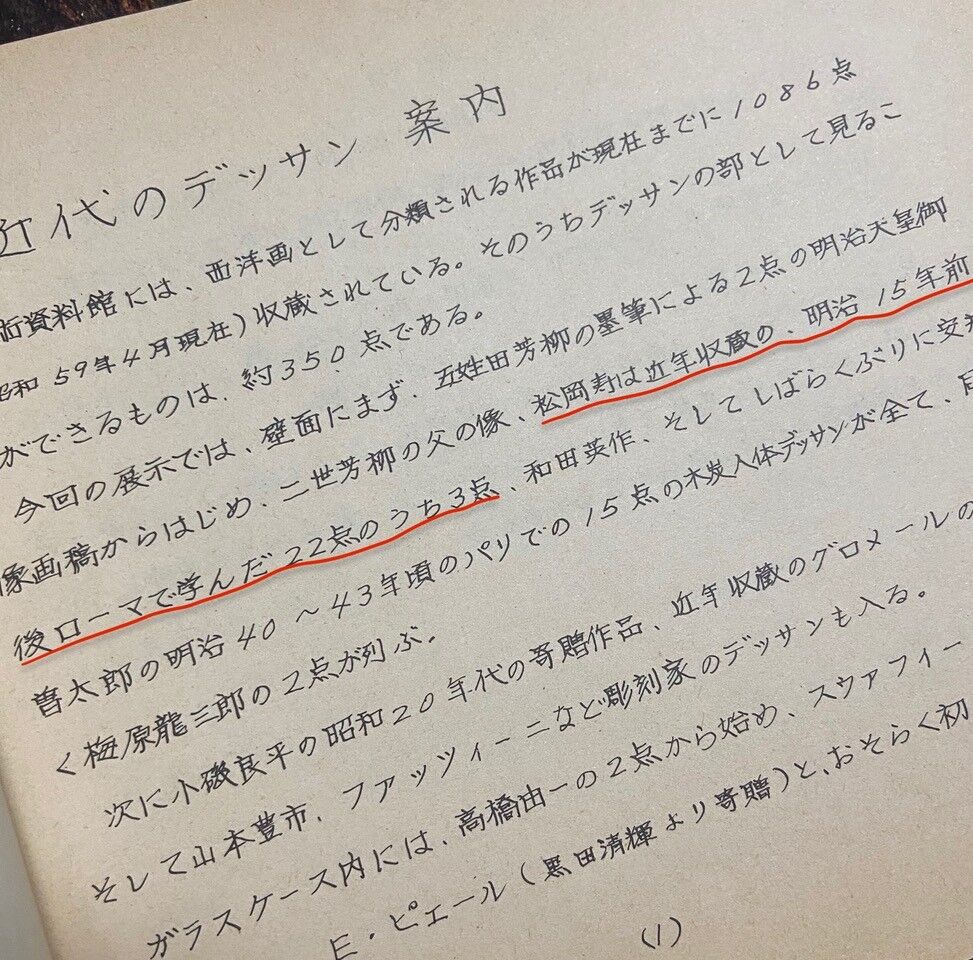 近代のデッサン 案内
術資料館には、西洋画として分類される作品が現在までに1086点
昭和59年4月現在)収蔵されている。そのうちデッサンの部として見るこ
ができるものは、約350点である。
今回の展示では、壁面にまず、五姓田芳柳の墨筆による2点の明治天皇御
像画稿からはじめ、二世芳柳の父の像、松岡寿は近年収蔵の、明治15年前
後ローマで学んだ22点のうち3点、和田英作、そしてしばらくぶりに安井
曽太郎の明治40~43年頃のパリでの15点の木炭人体デッサンが全て、同
く梅原龍三郎の2点が列ぶ。
次に小磯良平の昭和20年代の寄贈作品、近年収蔵のグロメールの
そして山本豊市、ファッツィーニなど彫刻家のデッサンも入る。
ガラスケース内には、高橋由一の2点から始め、スウァフィー
E・ピエール(黒田清輝より寄贈)と、おそらく初
(1)